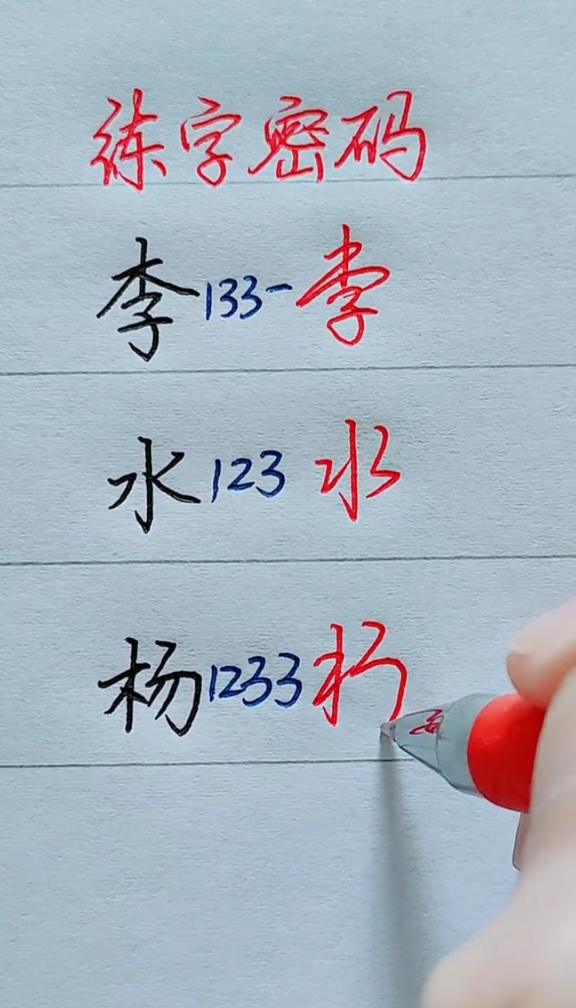 练字密码
李133-李
水123水
杨1233